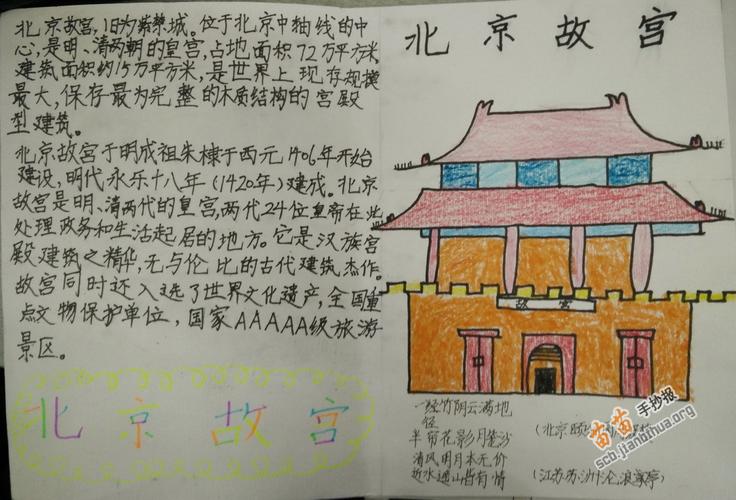 北京故宫,旧为紫禁城。位于北京中轴线的中
心,是明、清两朝的皇宫,占地面积72万平方米,
建筑面积约15万平方米,是世界上现存规模
最大,保存最为完整的木质结构的宫殿
型建筑。
北京故宫于明成祖朱棣于西元1406年开始
建设,明代永乐十八年(1420年)建成。北京
故宫是明、清两代的皇宫,两代24位皇帝在此
处理政务和生活起居的地方。它是汉族宫
殿建筑之精华,无与伦比的古代建筑杰作。
故宫同时还入选了世界文化遗产,全国重
点文物保护单位,国家AAAAA级旅游
景区。
北京故宫
北京故宫
故宫
一经竹阴云满地
径
半帘花影月笼沙
(北京颐
清风明月本无价
近水遥山皆有情
(江苏苏州沧浪亭)
苗苗手抄报
scb.jianbihua.org